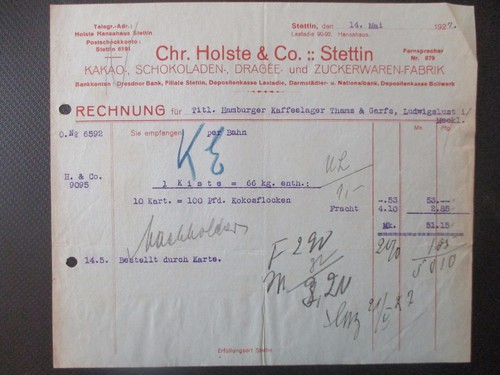 Telegr.-Adr.:
Holste Hansahaus Stettin
Postscheckkonto:
Stettin 6191
Stettin, den 14. Mai 1927.
Lastadie 90-92 Hansahaus.
Chr. Holste & Co. :: Stettin
Fernsprecher
Nr. 676
KAKAO-, SCHOKOLADEN-, DRAGÉE- und ZUCKERWAREN-FABRIK
Bankkonten: Dresdner Bank, Filiale Stettin, Depositenkasse Lastadie, Darmstädter- u. Nationalbank, Depositenkasse Bollwerk
RECHNUNG für Titl. Hamburger Kaffeelager Thams & Garfs, Ludwigslust i/
Meckl.
O. No 6592 Sie empfangen per Bahn Mk. Pfg.
KE
H. & Co.
9095
1 Kiste = 66 kg. enth.:
1,-
10 Kart. = 100 Pfd. Kokosflocken -.53 53.--
Fracht 4.10 2.85
Mk. 51.15
2% 1 05
50 10
Nachholder
F 290
M 3,20
14.5. Bestellt durch Karte.
Erfüllungsort Stettin